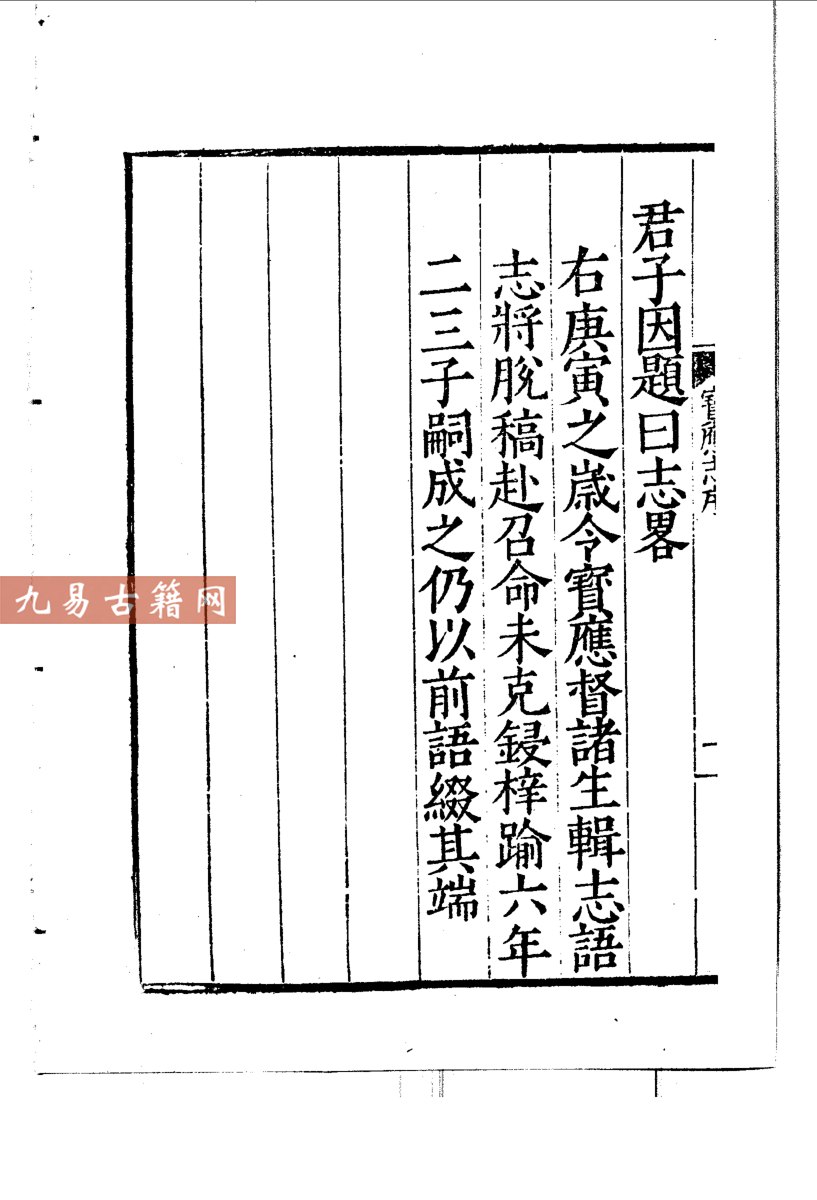 君子因題曰志畧
右庚寅之歲令寳應督諸生輯志語
志將脫稿赴召命未克鋟梓踰六年
二三子嗣成之仍以前語綴其端
寳應志序
二
九易古籍网